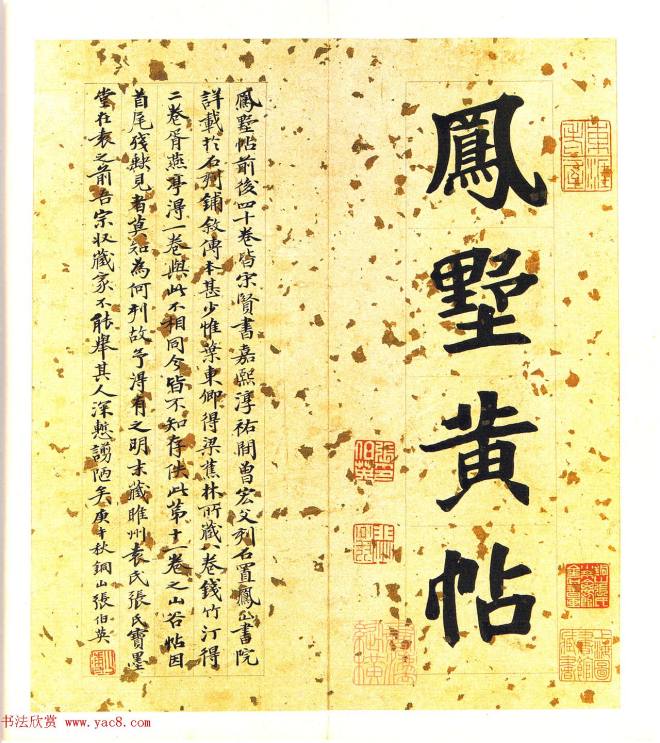 鳳墅黄帖
上海圖書館藏書
鳳墅帖前後四十卷皆宋賢書嘉熙淳祐間曾宏父刻石置鳳山書院
詳載於石刻鋪敘傳本甚少惟葉東卿得梁蕉林所藏八卷錢竹汀得
二卷胥燕亭得一卷與此不相同今皆不知存佚此第十一卷之山谷帖因
首尾殘缺見者莫知為何刻故予得有之明末藏睢州袁氏張氏寶墨
堂在袁之前吾宗收藏家不能舉其人深慙謭陋矣庚午秋銅山張伯英
书法欣赏 www.yac8.com